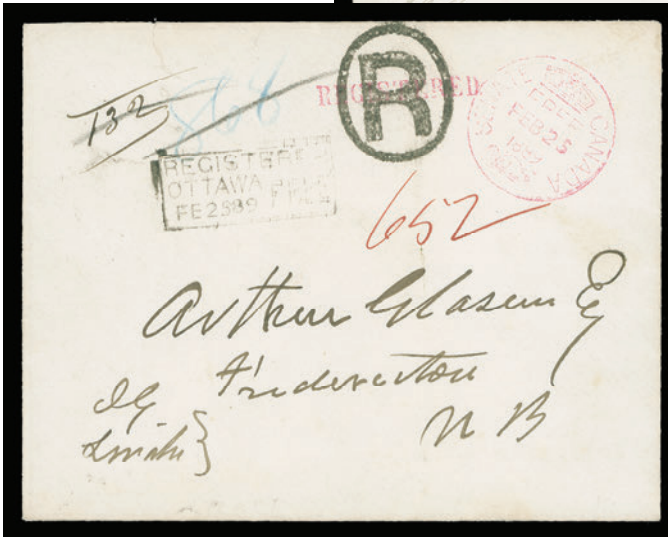 132
866
REGISTERED
R
SENATE CANADA
FREE
FEB 26
REGISTERED
OTTAWA
FE 25 89
652
Arthur Glasier Esq
Fredericton
N B